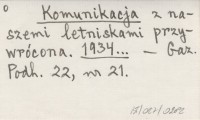 Komunikacja z na-
szemi letniskami przy-
wrócona. 1934... — Gaz.
Podh. 22, nr 21.